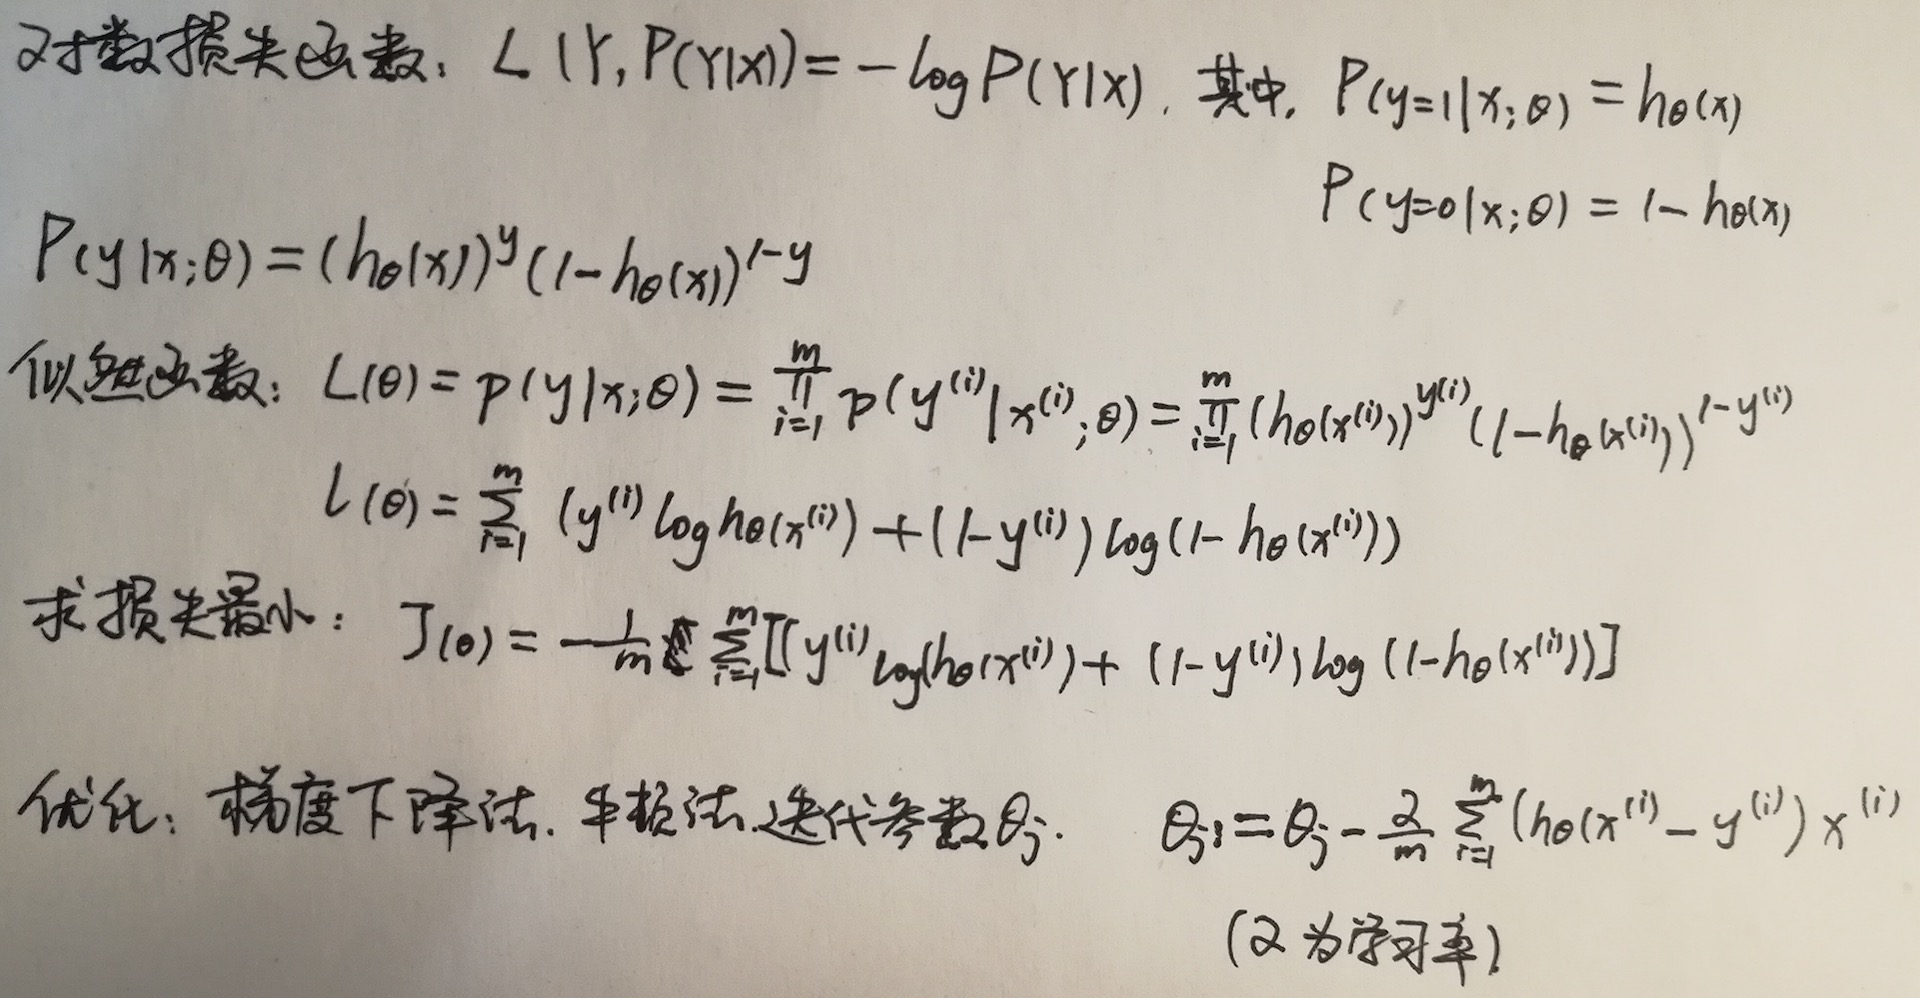 对数损失函数: L(Y, P(Y|X)) = -log P(Y|X). 其中, P(y=1|x;θ) = hθ(x)
P(y=0|x;θ) = 1 - hθ(x)
P(y|x;θ) = (hθ(x))^y (1-hθ(x))^{1-y}
似然函数: L(θ) = p(y|x;θ) = ∏_{i=1}^{m} p(y^{(i)}|x^{(i)};θ) = ∏_{i=1}^{m} (hθ(x^{(i)}))^{y^{(i)}} (1-hθ(x^{(i)}))^{1-y^{(i)}}
l(θ) = ∑_{i=1}^{m} (y^{(i)} log hθ(x^{(i)}) + (1-y^{(i)}) log(1-hθ(x^{(i)}))
求损失最小: J(θ) = -1/m ∑_{i=1}^{m} [(y^{(i)} log(hθ(x^{(i)}) + (1-y^{(i)}) log(1-hθ(x^{(i)}))]
优化: 梯度下降法. 牛顿法. 迭代参数θj. θj: = θj - α/m ∑_{i=1}^{m} (hθ(x^{(i)} - y^{(i)}) x^{(i)}
(α为学习率)